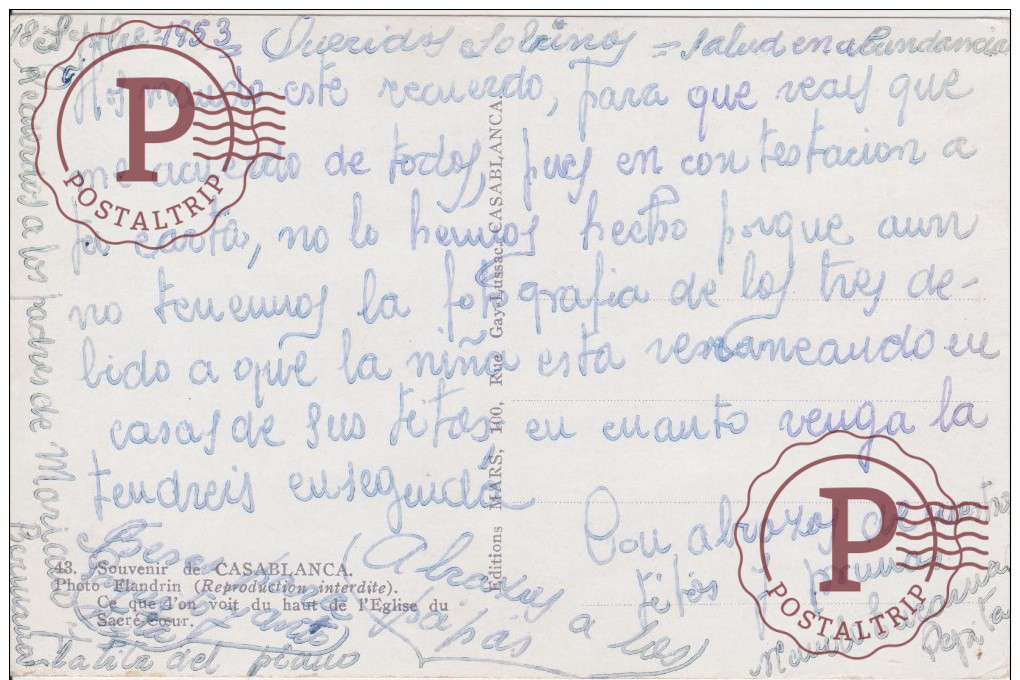 18 Septbre 1953 = Queridos Sobrinos = Salud en abundancia
Os mando este recuerdo, para que veais que
me acuerdo de todos, pues en contestacion a
tu carta, no lo hemos hecho porque aun
no tenemos la fotografia de los tres de-
bido a que la niña esta veraneando en
casas de sus titos en cuanto venga la
tendreis enseguida
Con abrazos de
titos y prima
Manuel
Pepita
Abrazos
a los
papás
tatita del piano
Recuerdos a los padres de
43. Souvenir de CASABLANCA.
Photo Flandrin (Reproduction interdite).
Ce que l'on voit du haut de l'Eglise du
Sacré-Cœur.
Editions MARS, 100, Rue Gay-Lussac. CASABLANCA.
P
POSTALTRIP
P
POSTALTRIP